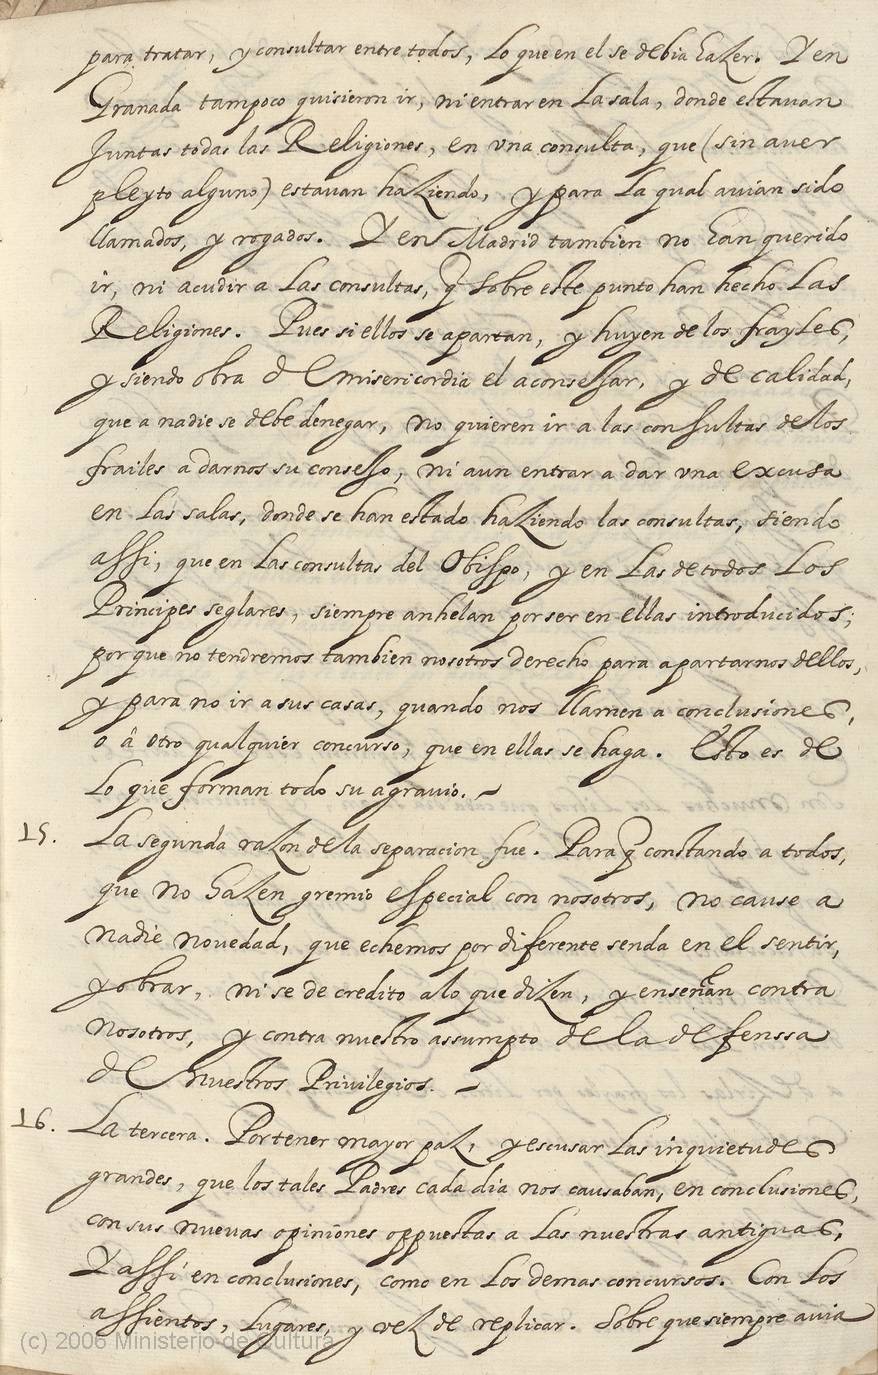 para tratar, y consultar entre todos, lo que en el se debia hazer. Y en
Granada tampoco quisieron ir, ni entrar en la sala, donde estavan
Juntas todas las Religiones, en vna consulta, que (sin aver
pleyto alguno) estavan haziendo, y para la qual avian sido
llamados, y rogados. Y en Madrid tambien no han querido
ir, ni acudir a las consultas, q̃ sobre este punto han hecho las
Religiones. Pues si ellos se apartan, y huyen de los frayles,
y siendo obra de misericordia el aconsessar, y de calidad,
que a nadie se debe denegar, no quieren ir a las consultas de los
frailes a darnos su consesso, ni aun entrar a dar vna excusa
en las salas, donde se han estado haziendo las consultas, siendo
assi, que en las consultas del Obispo, y en las de todos los
Principes seglares, siempre anhelan por ser en ellas introducidos;
por que no tendremos tambien nosotros derecho para apartarnos dellos,
y para no ir a sus casas, quando nos llamen a conclusiones,
o â otro qualquier concurso, que en ellas se haga. Esto es de
lo que forman todo su agravio. ~
15. La segunda razon de la separacion fue. Para q̃ constando a todos,
que no hazen gremio especial con nosotros, no cause a
nadie novedad, que echemos por diferente senda en el sentir,
y obrar, ni se de credito a lo que dizen, y enseñan contra
nosotros, y contra nuestro assumpto de la defenssa
de nuestros Privilegios. ~
16. La tercera. Por tener mayor paz, y escusar las inquietudes
grandes, que los tales Padres cada dia nos causaban, en conclusiones,
con sus nuevas opiniones oppuestas a las nuestras antiguas,
Y assi en conclusiones, como en los demas concursos. Con los
assientos, lugares, y vez de replicar. Sobre que siempre avia
(c) 2006 Ministerio de Cultura